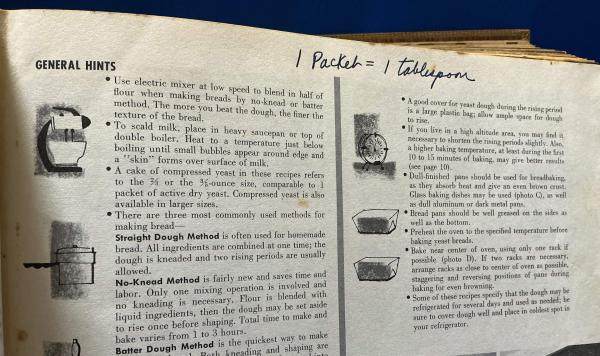 1 Packet = 1 tablespoon
GENERAL HINTS
• Use electric mixer at low speed to blend in half of
flour when making breads by no-knead or batter
method. The more you beat the dough, the finer the
texture of the bread.
• To scald milk, place in heavy saucepan or top of
double boiler. Heat to a temperature just below
boiling until small bubbles appear around edge and
a "skin" forms over surface of milk.
• A cake of compressed yeast in these recipes refers
to the ⅔ or the ⅗-ounce size, comparable to 1
packet of active dry yeast. Compressed yeast is also
available in larger sizes.
• There are three most commonly used methods for
making bread—
Straight Dough Method is often used for homemade
bread. All ingredients are combined at one time; the
dough is kneaded and two rising periods are usually
allowed.
No-Knead Method is fairly new and saves time and
labor. Only one mixing operation is involved and
no kneading is necessary. Flour is blended with
liquid ingredients, then the dough may be set aside
to rise once before shaping. Total time to make and
bake varies from 1 to 3 hours.
Batter Dough Method is the quickest way to make
Both kneading and shaping are
• A good cover for yeast dough during the rising period
is a large plastic bag; allow ample space for dough
to rise.
• If you live in a high altitude area, you may find it
necessary to shorten the rising periods slightly. Also,
a higher baking temperature, at least during the first
10 to 15 minutes of baking, may give better results
(see page 10).
• Dull-finished pans should be used for breadbaking,
as they absorb heat and give an even brown crust.
Glass baking dishes may be used (photo C), as well
as dull aluminum or dark metal pans.
• Bread pans should be well greased on the sides as
well as the bottom.
• Preheat the oven to the specified temperature before
baking yeast breads.
• Bake near center of oven, using only one rack if
possible (photo D). If two racks are necessary,
arrange racks as close to center of oven as possible,
staggering and reversing positions of pans during
baking for even browning.
• Some of these recipes specify that the dough may be
refrigerated for several days and used as needed; be
sure to cover dough well and place in coldest spot in
your refrigerator.